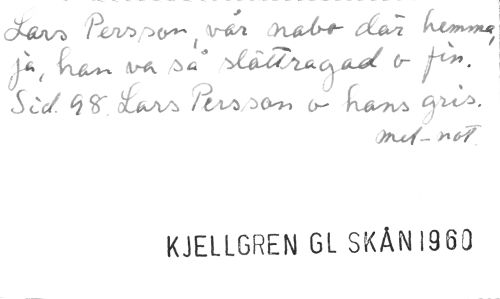 Lars Persson, vår nabo där hemma,
ja, han va så slättragad o fin.
Sid. 98. Lars Persson o hans gris.
mel-not.
KJELLGREN GL SKÅN 1960